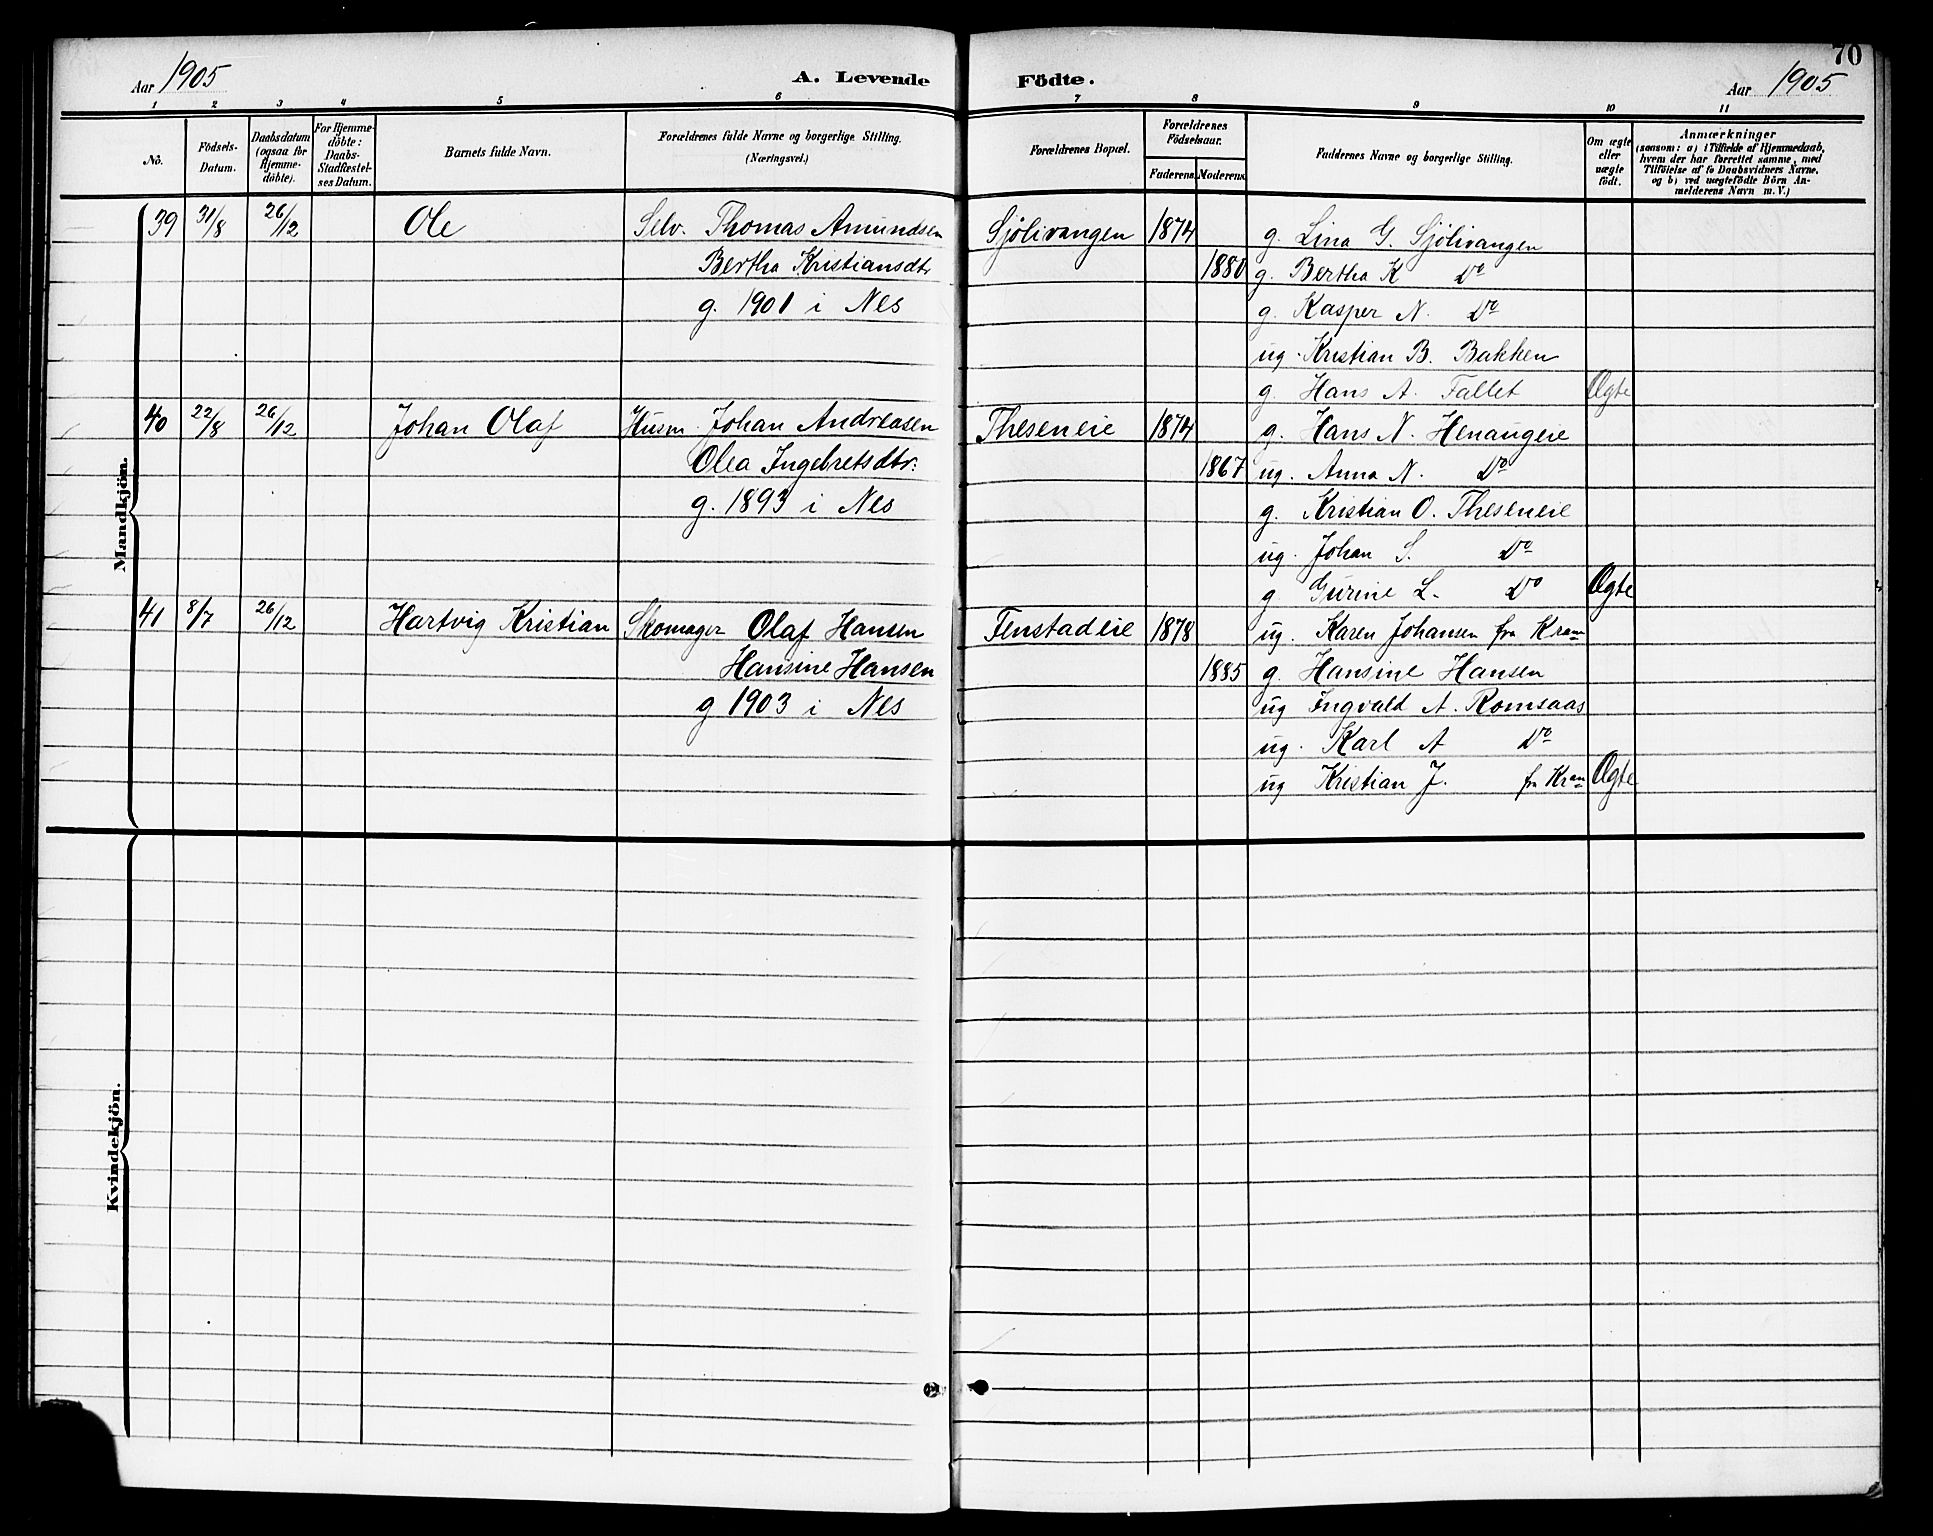 70
Aar 1905 A. Levende Födte. Aar 1905
1 2 3 4 5 6 7 8 9 10 11
No. Födsels-Datum. Daabsdatum (ogsaa for Hjemme-döbte). For Hjemme-döbte: Daabs-Stadfæstel-ses Datum. Barnets fulde Navn. Forældrenes fulde Navne og borgerlige Stilling. (Næringsvei.) Forældrenes Bopæl. Forældrenes Födselsaar. Faderens. Moderens. Faddernes Navne og borgerlige Stilling. Om ægte eller uægte födt. Anmærkninger (saasom: a) i Tilfælde af Hjemmedaab, hvem der har forrettet samme, med Tilföielse af to Daabsvidners Navne, og b) ved uægtefödte Börn An-melderens Navn m. V.)
Mandkjön.
39 31/8 26/12 Ole Selv. Thomas Amundsen Sjölivangen 1874 g. Lina G. Sjölivangen
Bertha Kristiansdtr 1880 g. Bertha K Do
g. 1901 i Nes g. Kasper N. Do
ug. Kristian B. Bakken
g. Hans A. Fallet Ægte
40 22/8 26/12 Johan Olaf Husm. Johan Andreasen Theseneie 1874 g. Hans N. Henaugeie
Olea Ingebretsdtr: 1867 ug. Anna N. Do
g. 1893 i Nes g. Kristian O. Theseneie
ug. Johan S. Do
g Gurine L. Do Ægte
41 8/7 26/12 Hartvig Kristian Skomager Olaf Hansen Fenstadeie 1878 ug. Karen Johansen fra Kran
Hansine Hansen 1885 g. Hansine Hansen
g 1903 i Nes ug Ingvald A. Romsaas
ug. Karl A Do
ug Kristian J. fra Kran Ægte
Kvindekjön.